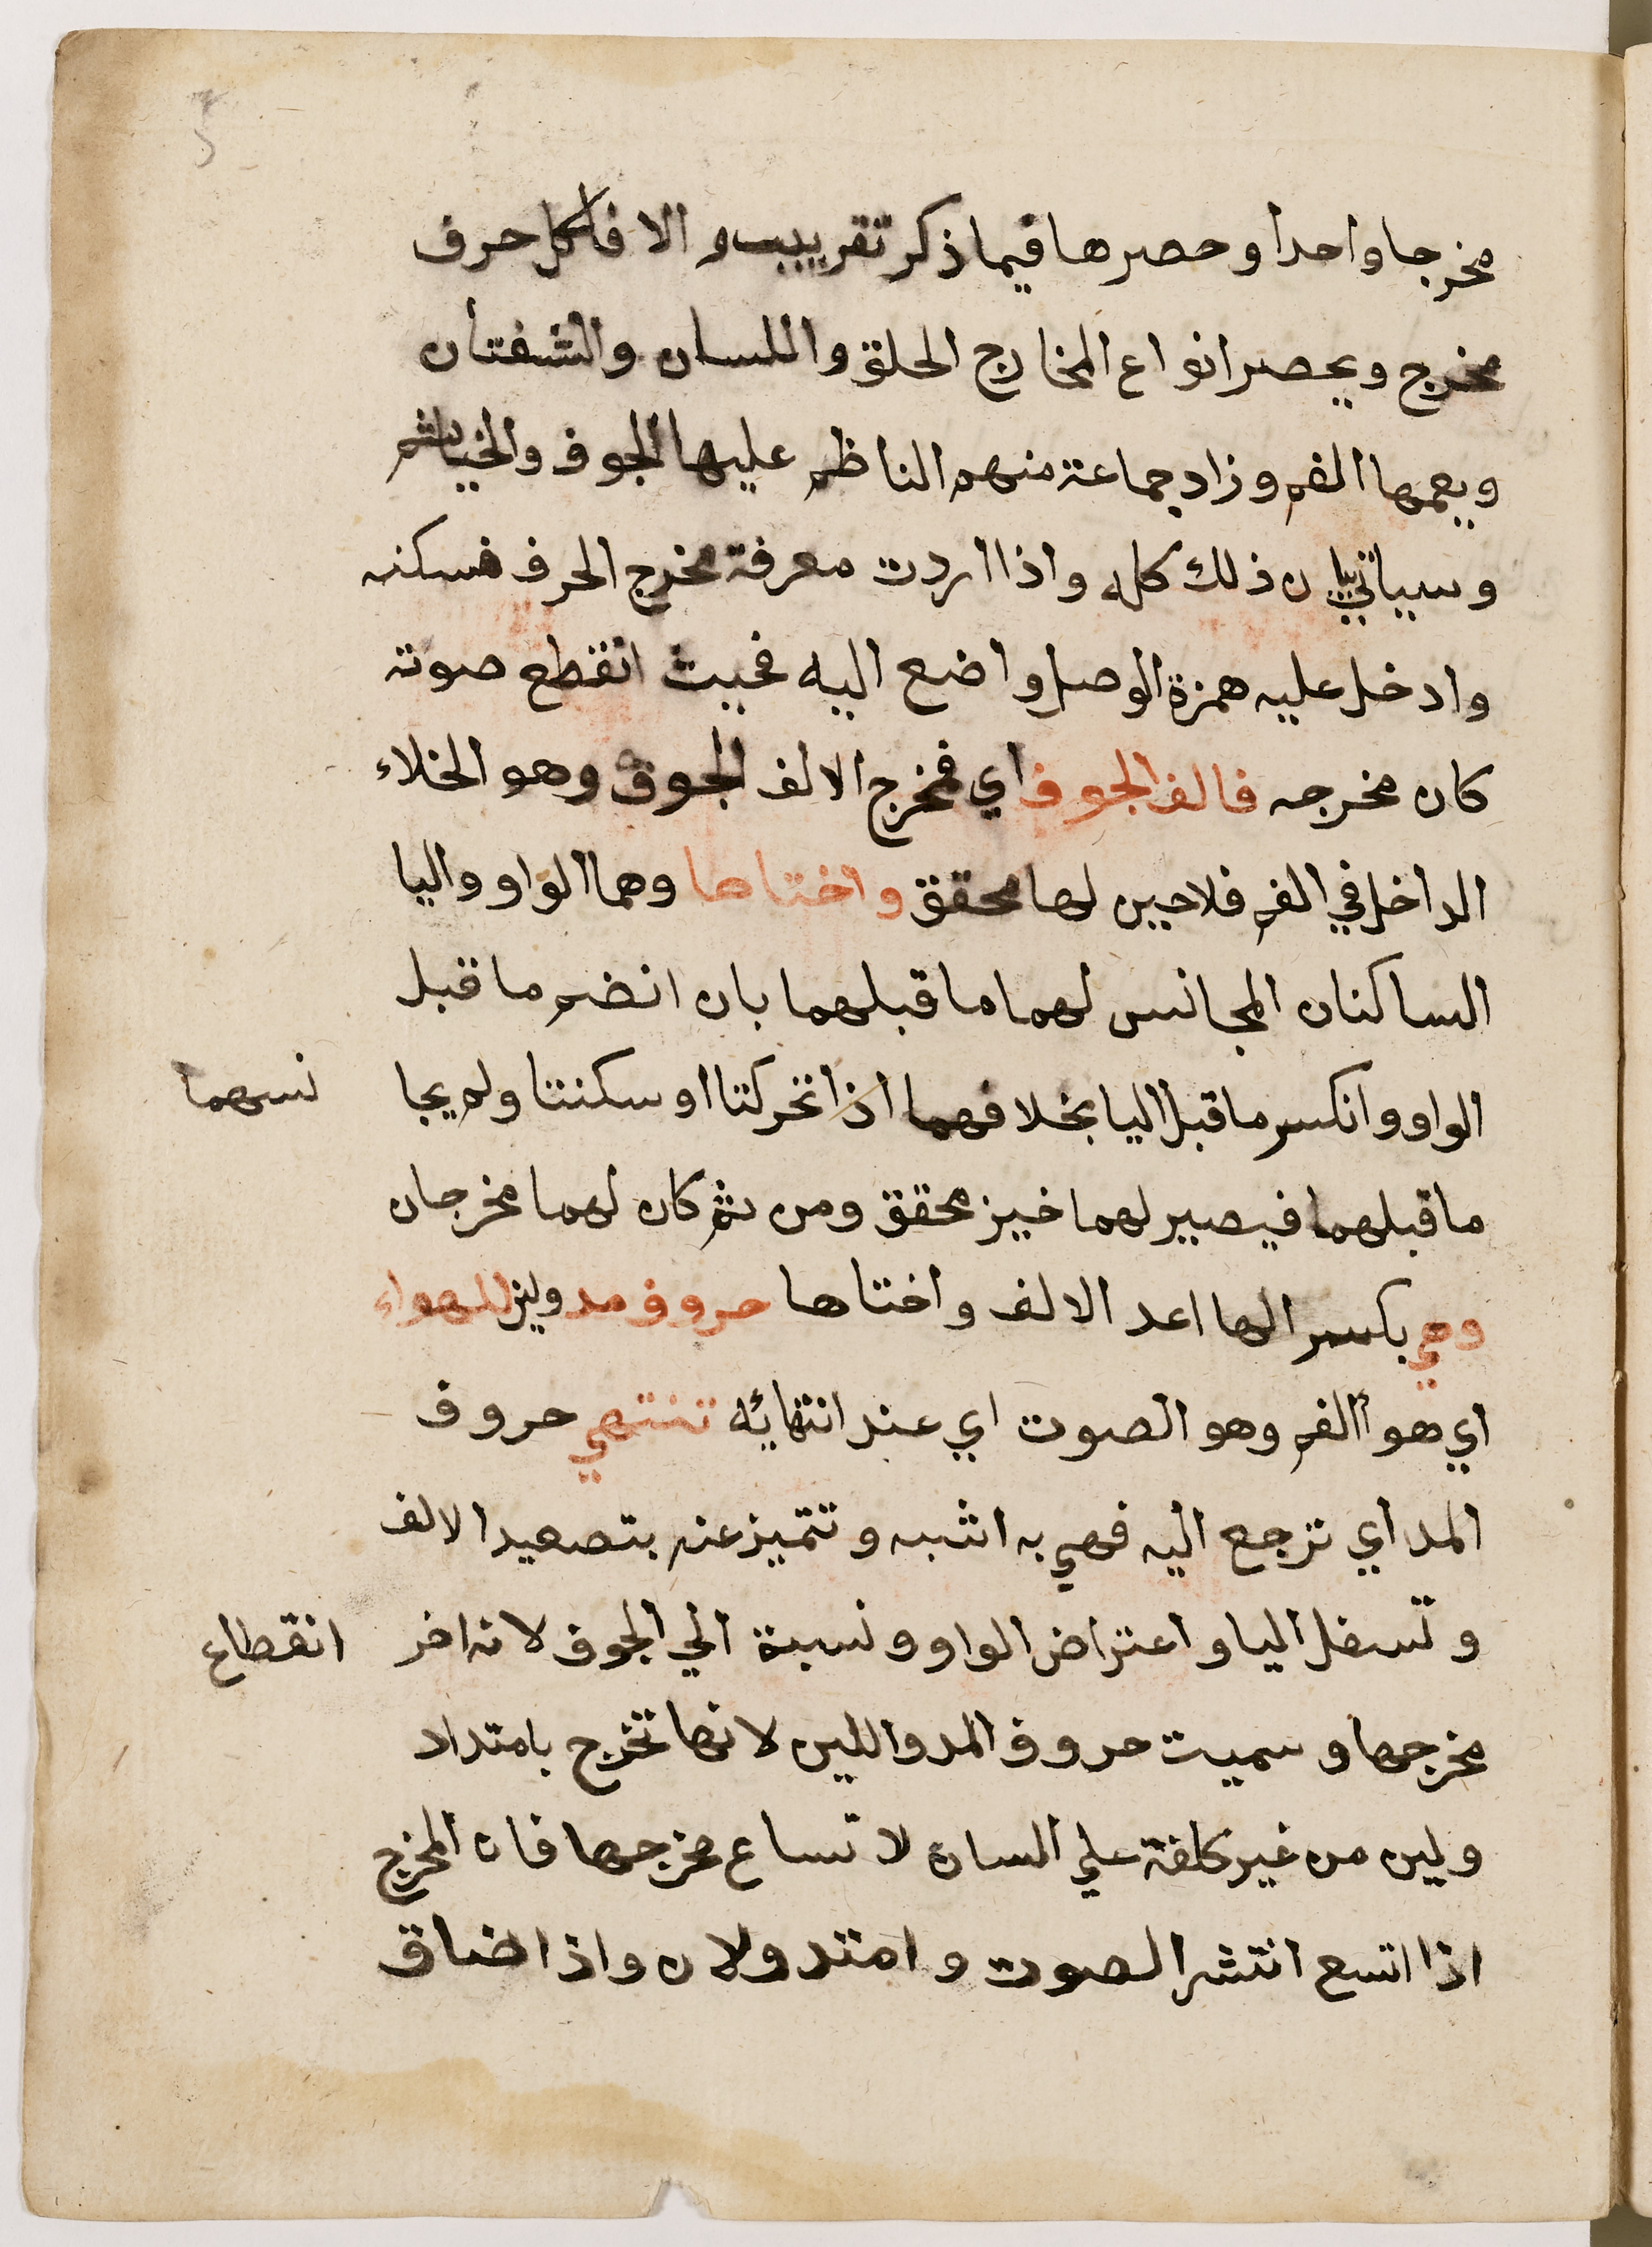 مخرجا واحدا وحصرها فيما ذكر تقريب والا فلكل حرف
مخرج ويحصر انواع المخارج الحلق واللسان والشفتان
ويعمها الفم وزاد جماعة منهم الناظم عليها الجوف والخياشم
وسياتي بيان ذلك كله واذا اردت معرفة مخرج الحرف فسكنه
وادخل عليه همزة الوصل واضع اليه فحيث انقطع صوته
كان مخرجه فالف الجوف اي فمخرج الالف الجوف وهو الخلاء
الداخل في الفم فلاحيين لها محقق واختاها وهما الواو واليا
الساكنان المجانس لهما ما قبلهما بان انضم ما قبل
الواو وانكسر ما قبل اليا بخلافهما اذا تحركتا او سكنتا ولم يجا نسهما
ما قبلهما فيصير لهما خيز محقق ومن ثم كان لهما مخرجان
وهي بكسر الها اعد الالف واختاها حروف مد ولين للهواء
اي هوآ الفم وهو الصوت اي عند انتهائه تنتهي حروف
المد اي ترجع اليه فهي به اشبه وتتميز عنه بتصعيد الالف
وتسفل اليا واعتراض الواو ونسبة الي الجوف لانه اخر انقطاع
مخرجها وسميت حروف المد واللين لانها تخرج بامتداد
ولين من غير كلفة علي السان لا تساع مخرجها فان المخرج
اذا اتسع انتشر الصوت وامتد ولان واذا ضاق